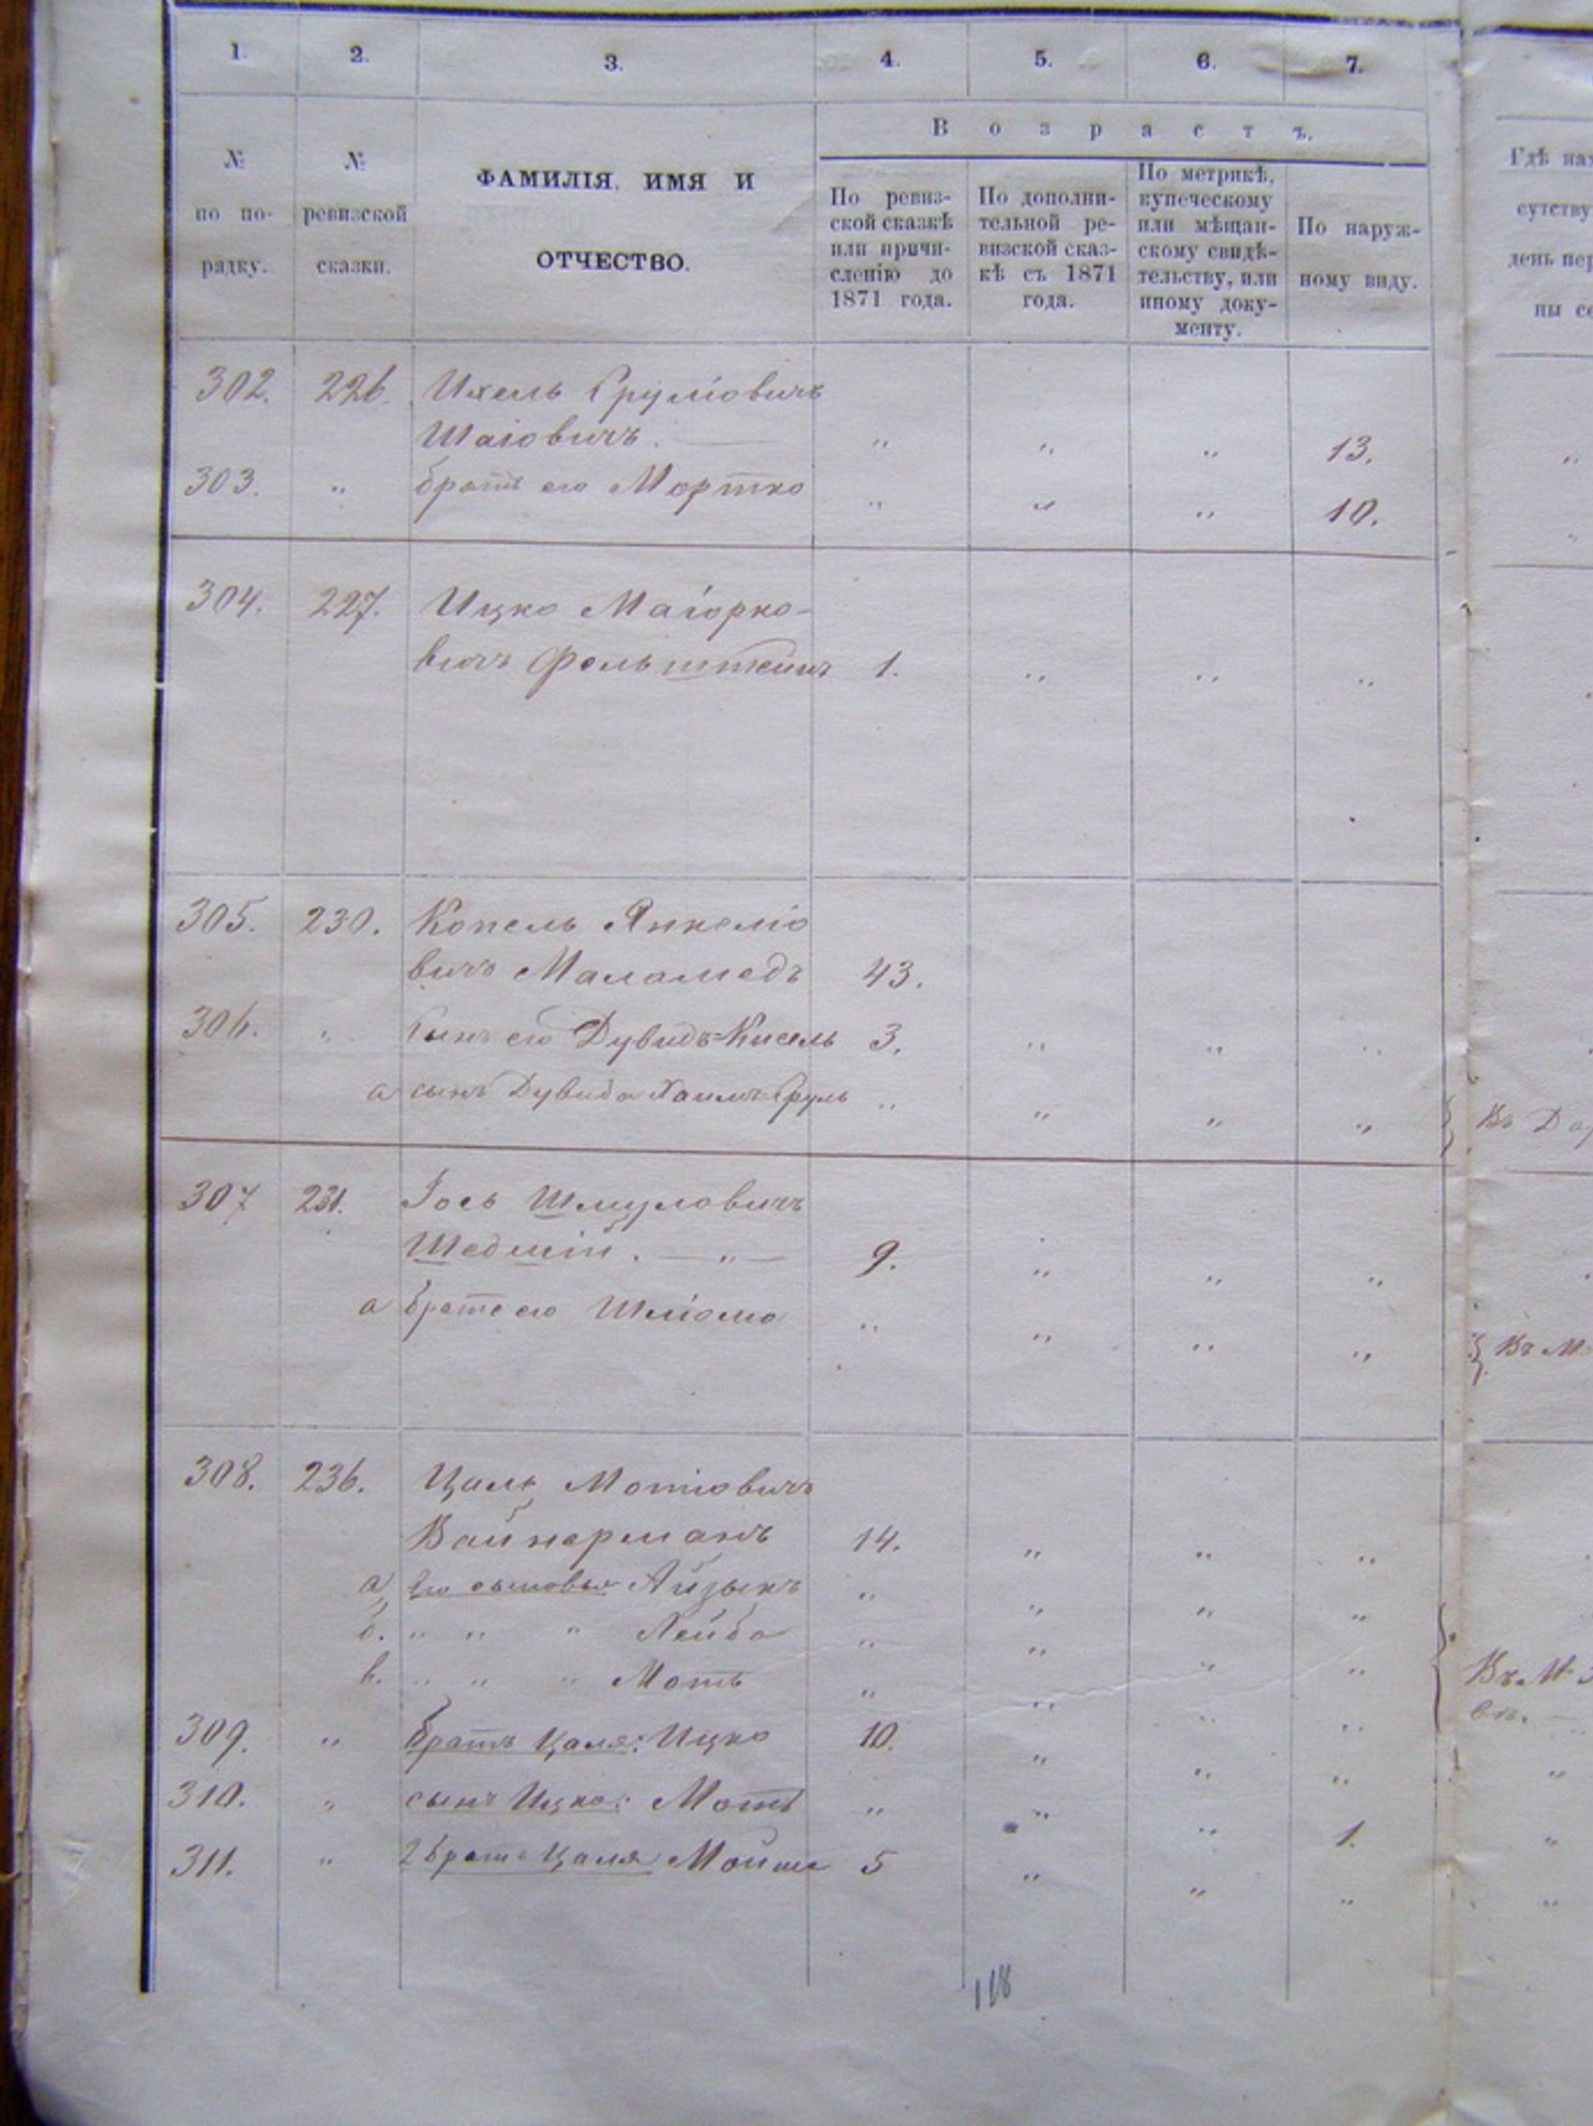 1. 2. 3. 4. 5. 6. 7.
В о з р а с т ъ.
№ по по- рядку.
№ ревизской сказки.
ФАМИЛІЯ, ИМЯ И
ОТЧЕСТВО.
По ревиз-
ской сказкѣ
или причи-
сленію до
1871 года.
По дополни-
тельной ре-
визской сказ-
кѣ съ 1871
года.
По метрикѣ,
купеческому
или мѣщан-
скому свидѣ-
тельству, или
иному доку-
менту.
По наруж-
ному виду.
Гдѣ нах
сутству
день пер
ны се
302. 226. Ихель Сруліовичъ
Шаіовичъ. — „ „ „ 13.
303. „ братъ его Мортко „ „ „ 10.
304. 227. Ицко Маіорко-
вичъ Фельштейнъ 1. „ „ „
305. 230. Копель Янкеліо
вичъ Маламедъ 43.
306. „ Сынъ его Дувидъ=Кисель 3. „ „ „
а сынъ Дувида Хаимъ-Сруль „ „ „ „
Въ
307 231. Іось Шмуловичъ
Шедшій. — „ — 9. „ „ „
а братъ его Шліома „ „ „ „
Въ М
308. 236. Цаль Мотіовичъ
Вайнерманъ 14. „ „ „
а, Его сыновья Айзыкъ „ „ „ „
б. „ „ „ Лейба „ „ „ „
в. „ „ „ Моть „ „ „ „
Въ М
309. „ братъ Цаля: Ицко 10. „ „ „
310. „ сынъ Ицка: Моть „ „ „ 1.
311. „ 2 братъ Цаля Мойше 5 „ „ „
118